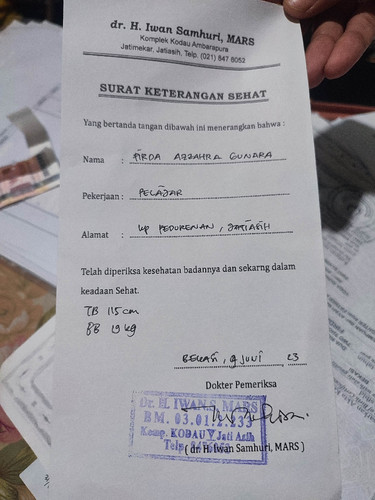 dr. H. Iwan Samhuri, MARS
Komplek Kodau Ambarapura
Jatimekar, Jatiasih, Telp. (021) 847 6052
SURAT KETERANGAN SEHAT
Yang bertanda tangan dibawah ini menerangkan bahwa :
Nama : FIRDA AZZAHRA GUNARA
Pekerjaan : PELAJAR
Alamat : kp PEDURENAN, JATIASIH
Telah diperiksa kesehatan badannya dan sekarng dalam
keadaan Sehat.
TB 115 cm
BB 19 kg
BEKASI, 9 JUNI 23
Dokter Pemeriksa
Dr. H. IWAN S. MARS
BM. 03.01.2.233
Komp. KODAU V Jati Asih
Telp.
( dr. H. Iwan Samhuri, MARS )